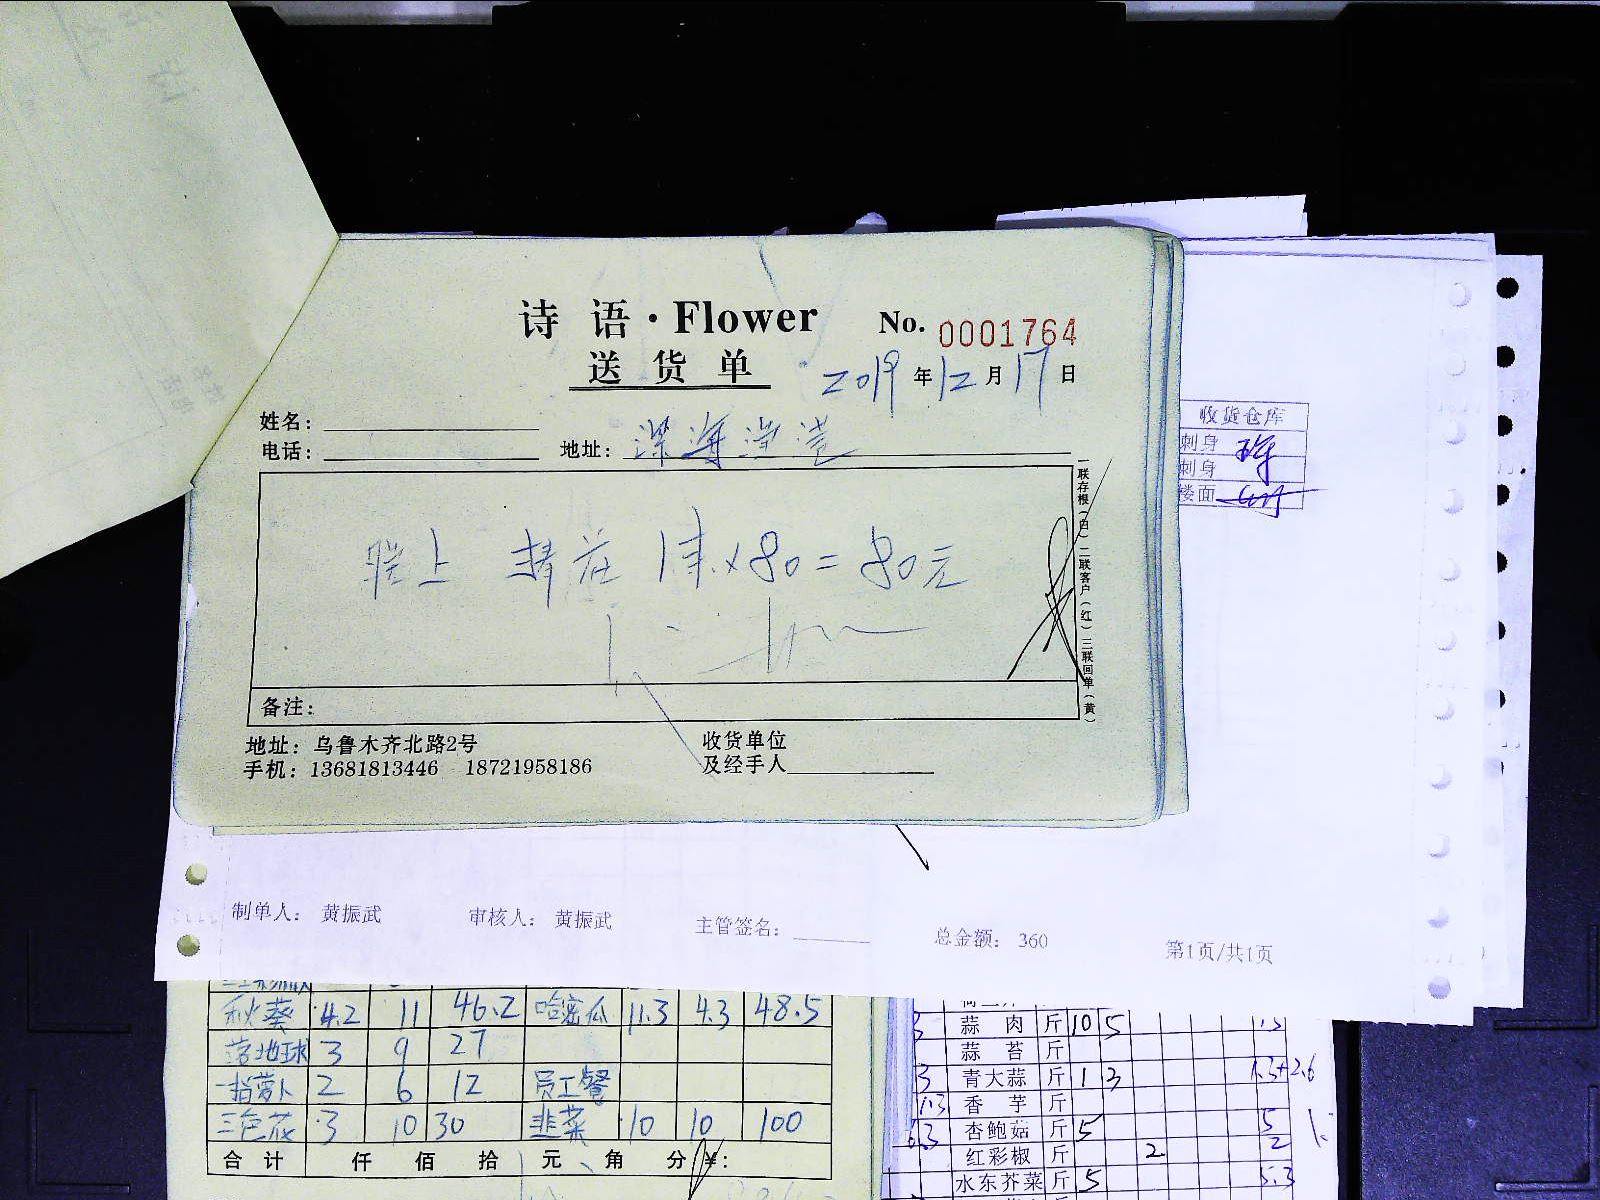 诗 语·Flower
No. 0001764
送 货 单
2019年12月17日
姓名:
电话: 地址:
一联存根(白) 二联客户(红) 三联回单(黄)
1束×80=80元
备注:
地址: 乌鲁木齐北路2号
手机: 13681813446 18721958186
收货单位
及经手人
收货仓库
刺身
刺身
楼面
制单人: 黄振武 审核人: 黄振武 主管签名: 总金额: 360 第1页/共1页
秋葵 4.2 11 46.2 哈密瓜 11.3 4.3 48.5
落地球 3 9 27
一指萝卜 2 6 12 员工餐
三色花 3 10 30 韭菜 10 10 100
合 计 仟 佰 拾 元 角 分 ¥:
3 蒜 肉 斤 10 5
蒜 苔 斤
3 青大蒜 斤 1 3 1.3+2.6
1.3 香 芋 斤
杏鲍菇 斤 5 5
红彩椒 斤 2 2
水东芥菜 斤 5 5.3